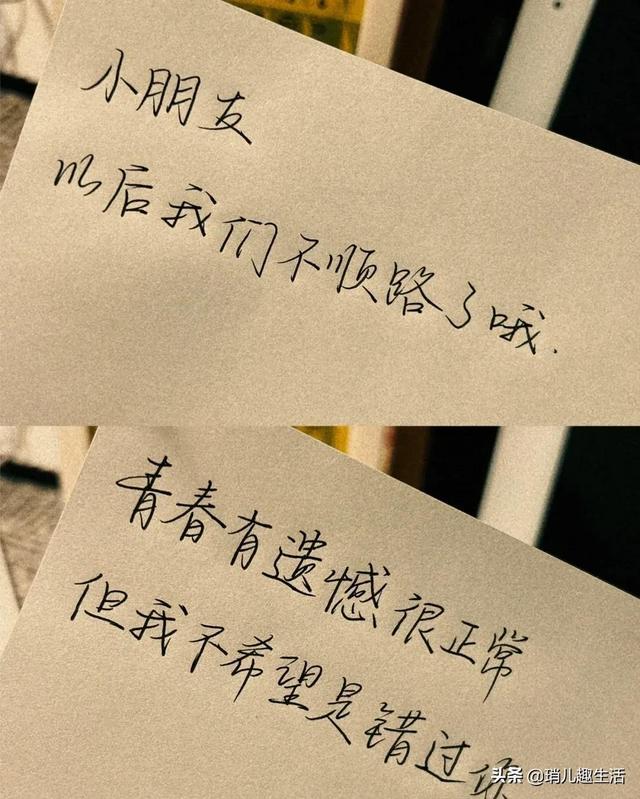 小朋友
以后我们不顺路了哦.
青春有遗憾很正常
但我不希望是错过你
头条 @琑儿趣生活